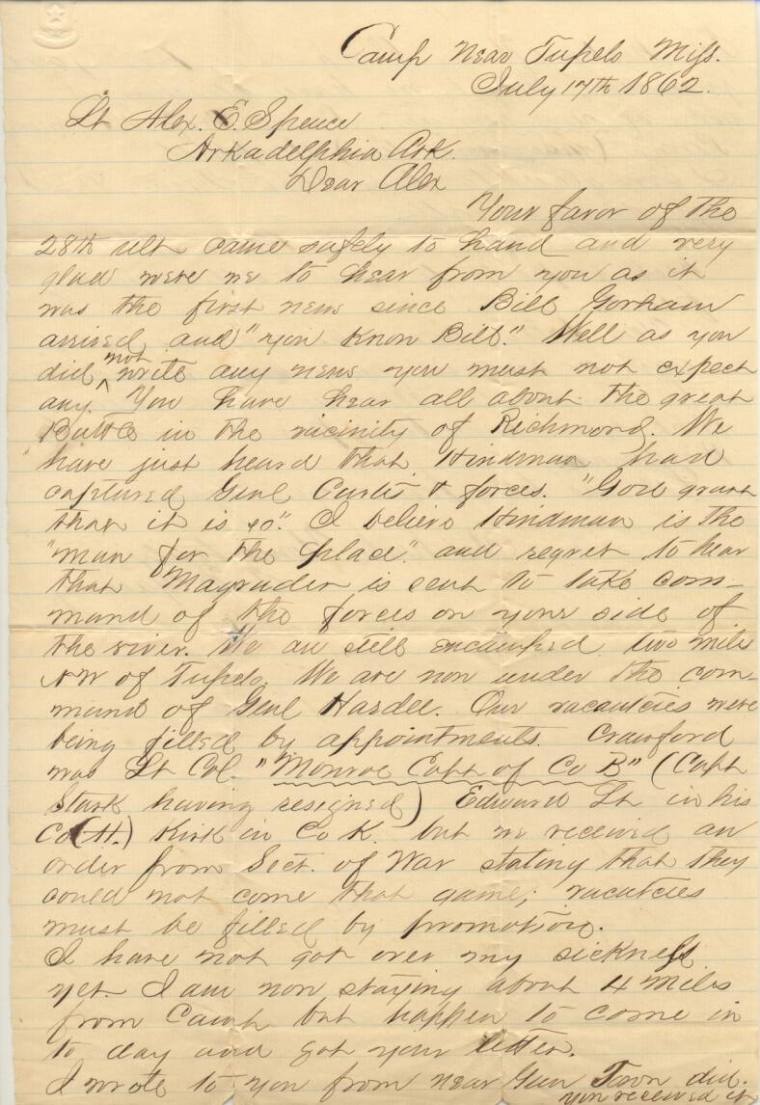 Camp Near Tupelo Miss.
July 17th 1862.
Lt Alex. E. Spence
Arkadelphia Ark.
Dear Alex
Your favor of the
28th ult came safely to hand and very
glad were we to hear from you as it
was the first news since Bill Gorham
arrived and "you know Bill." Well as you
did not write any news you must not expect
any. You have hear all about the great
Battle in the vicinity of Richmond. We
have just heard that Hindman had
captured Genl Curtis & forces. "God grant
that it is so". I believe Hindman is the
"man for the place" and regret to hear
that Magruder is sent to take com-
mand of the forces on your side of
the river. We are still encamped two miles
NW of Tupelo. We are now under the com-
mand of Genl Hardee. Our vacancies were
being filled by appointments. Crawford
was Lt Col. "Monroe Capt of Co B" (Capt
Stark having resigned) Edward Lt in his
Co (H.) Kirk in Co K. but we received an
order from Sect. of War stating that they
could not come that game; vacancies
must be filled by promotion.
I have not got over my sickness
yet. I am now staying about 4 miles
from Camp but happen to come in
to day and got your letter.
I wrote to you from near Gun Town did
you received it